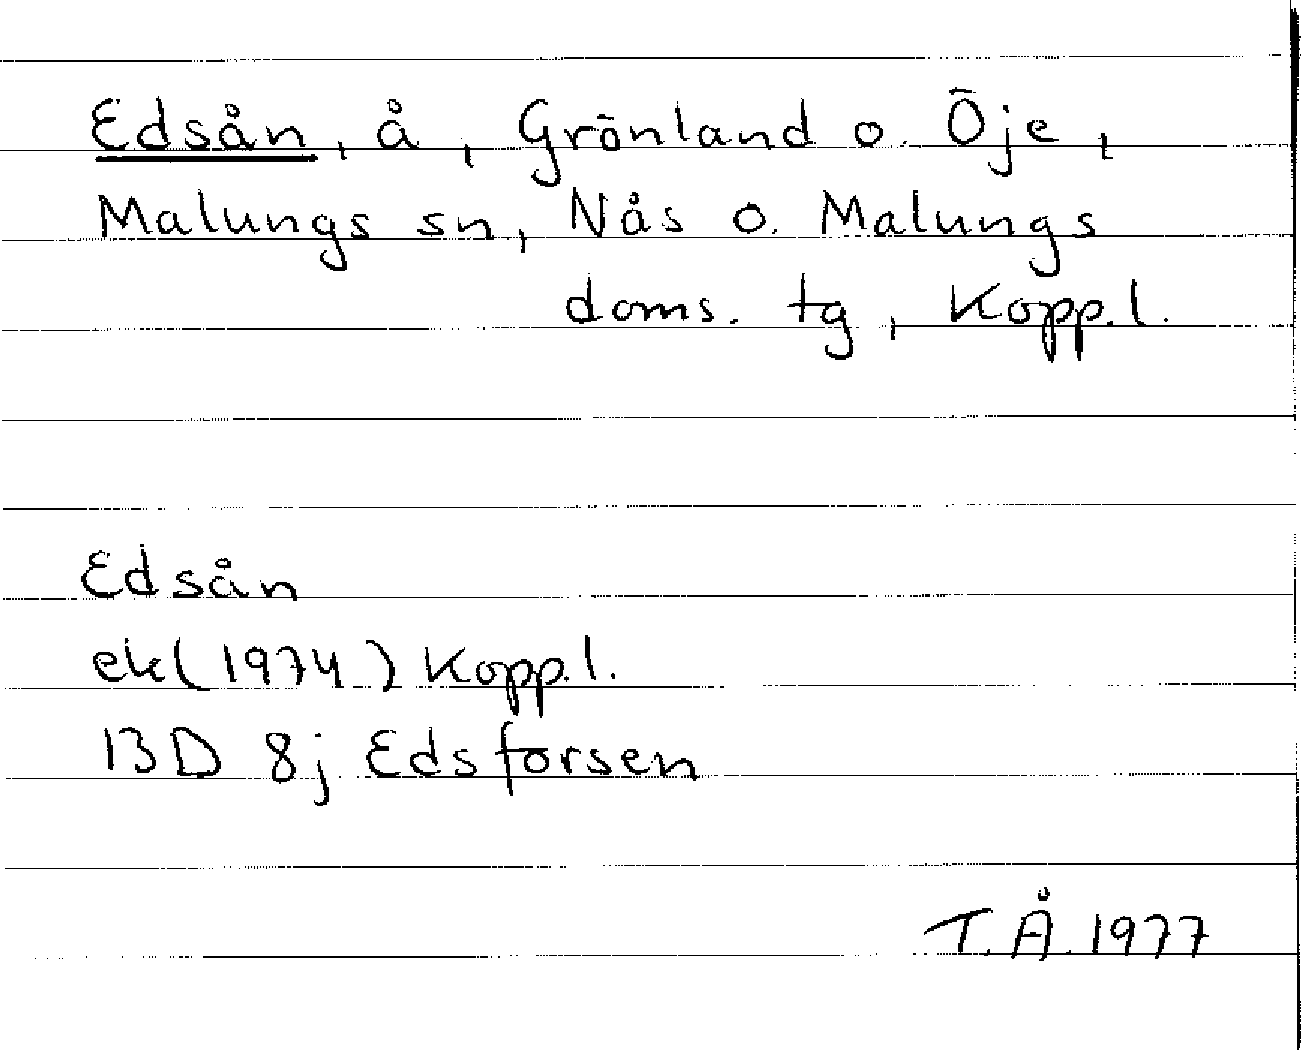 Edsån, å, Grönland o. Öje,
Malungs sn, Nås o. Malungs
doms. tg, Kopp.l.
Edsån
ek (1974) Kopp.l.
13D 8j Edsforsen
T.Å. 1977